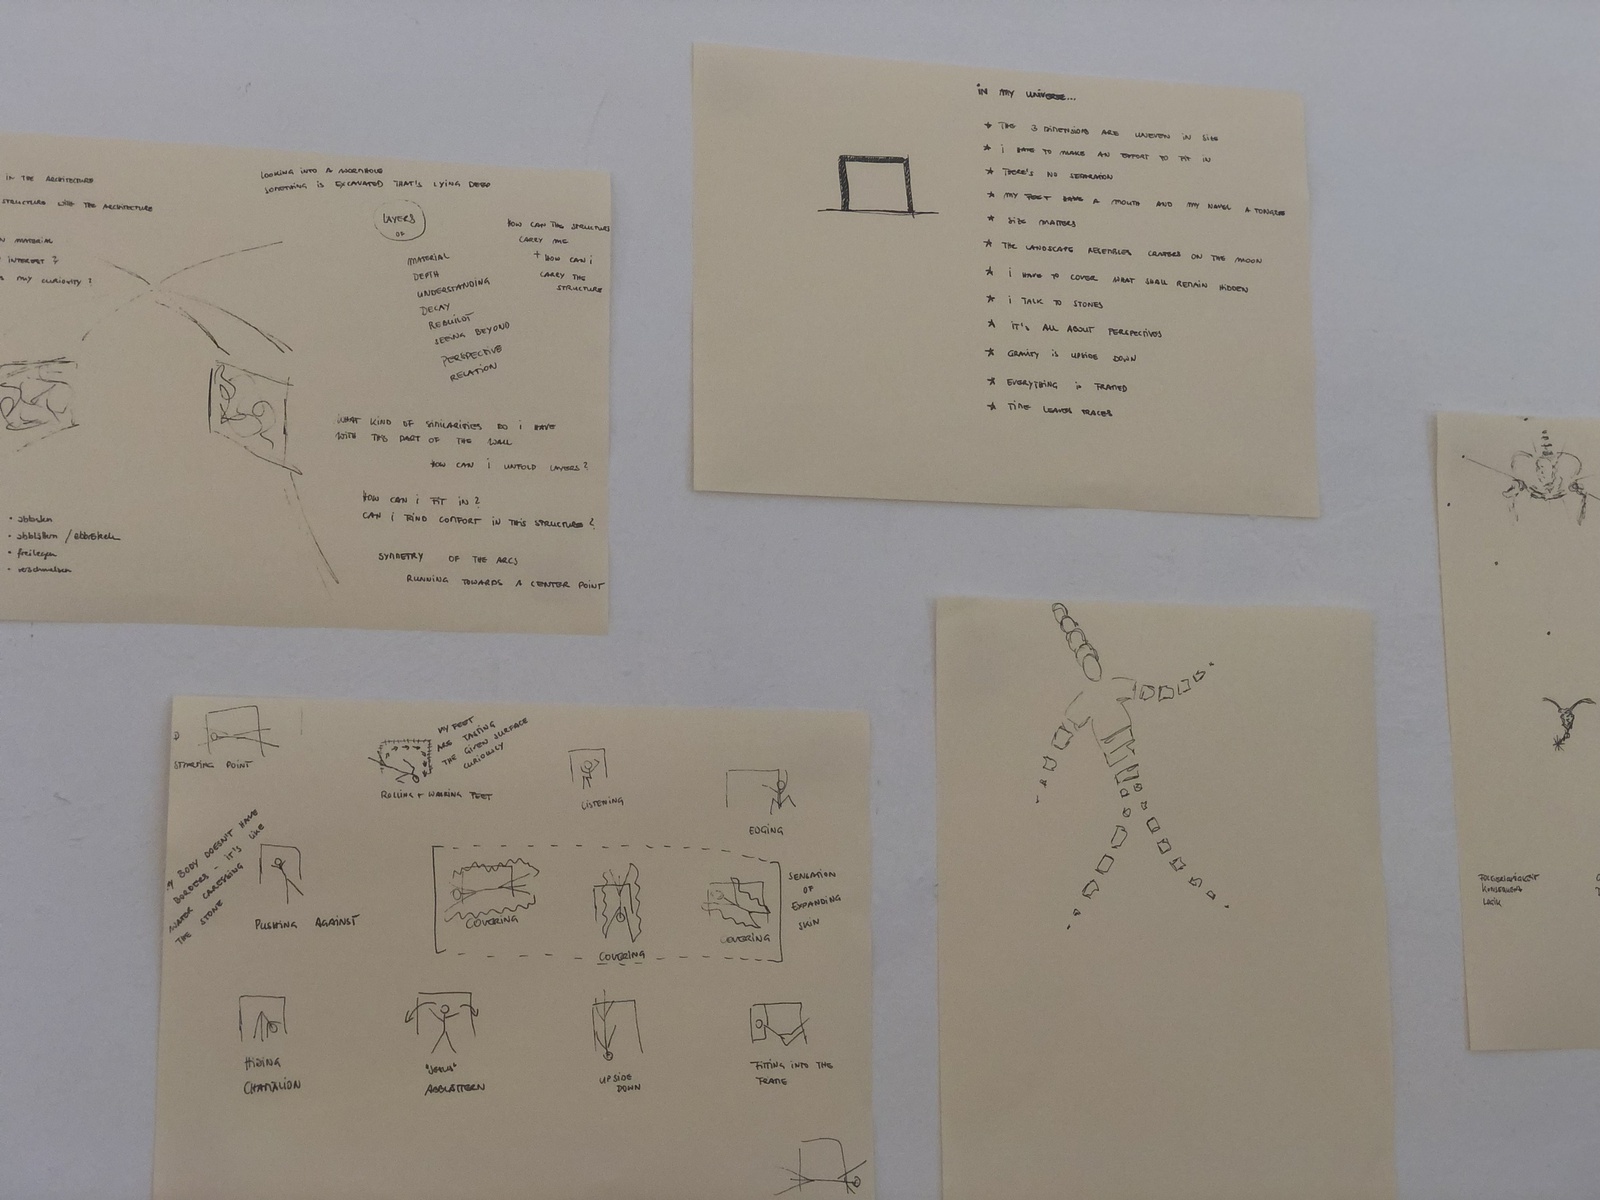 IN THE ARCHITECTURE
STRUCTURE WITH THE ARCHITECTURE
MATERIAL
INTEREST?
MY CURIOSITY?
LOOKING INTO A
SOMETHING IS EXCAVATED THAT'S LYING DEEP
LAYERS
OF
MATERIAL
DEPTH
UNDERSTANDING
DECAY
REBUILDT
SEEING BEYOND
PERSPECTIVE
RELATION
HOW CAN THE STRUCTURE
CARRY ME
+ HOW CAN i
CARRY THE
STRUCTURE
WHAT KIND OF SIMILARITIES DO i HAVE
WITH THIS PART OF THE WALL
HOW CAN i UNFOLD LAYERS?
HOW CAN i FIT IN?
CAN i FIND COMFORT IN THIS STRUCTURE?
SYMMETRY OF THE ARCS
RUNNING TOWARDS A CENTER POINT
• abblättern / abbröckeln
• freilegen
• verschmelzen
iN MY UNIVERSE...
* THE 3 DIMENSIONS ARE UNEVEN IN SIZE
* i HAVE TO MAKE AN EFFORT TO FIT IN
* THERE'S NO SEPARATION
* MY FEET HAVE A MOUTH AND MY NAVEL A TONGUE
* SIZE MATTERS
* THE LANDSCAPE RESEMBLES CRATERS ON THE MOON
* i HAVE TO COVER WHAT SHALL REMAIN HIDDEN
* i TALK TO STONES
* IT'S ALL ABOUT PERSPECTIVES
* GRAVITY IS UPSIDE DOWN
* EVERYTHING IS FRAMED
* TIME LEAVES TRACES
STARTING POINT
MY FEET
ARE TASTING
THE GIVEN SURFACE
CURIOUSLY
ROLLING + WALKING FEET
LISTENING
EDGING
MY BODY DOESN'T HAVE
BORDERS - IT'S LIKE
WATER CARESSING
THE STONE
PUSHING AGAINST
COVERING
COVERING
COVERING
SENSATION
OF
EXPANDING
SKIN
HIDING
CHAMÄLION
ABBLÄTTERN
UPSIDE
DOWN
FITTING INTO THE
FRAME